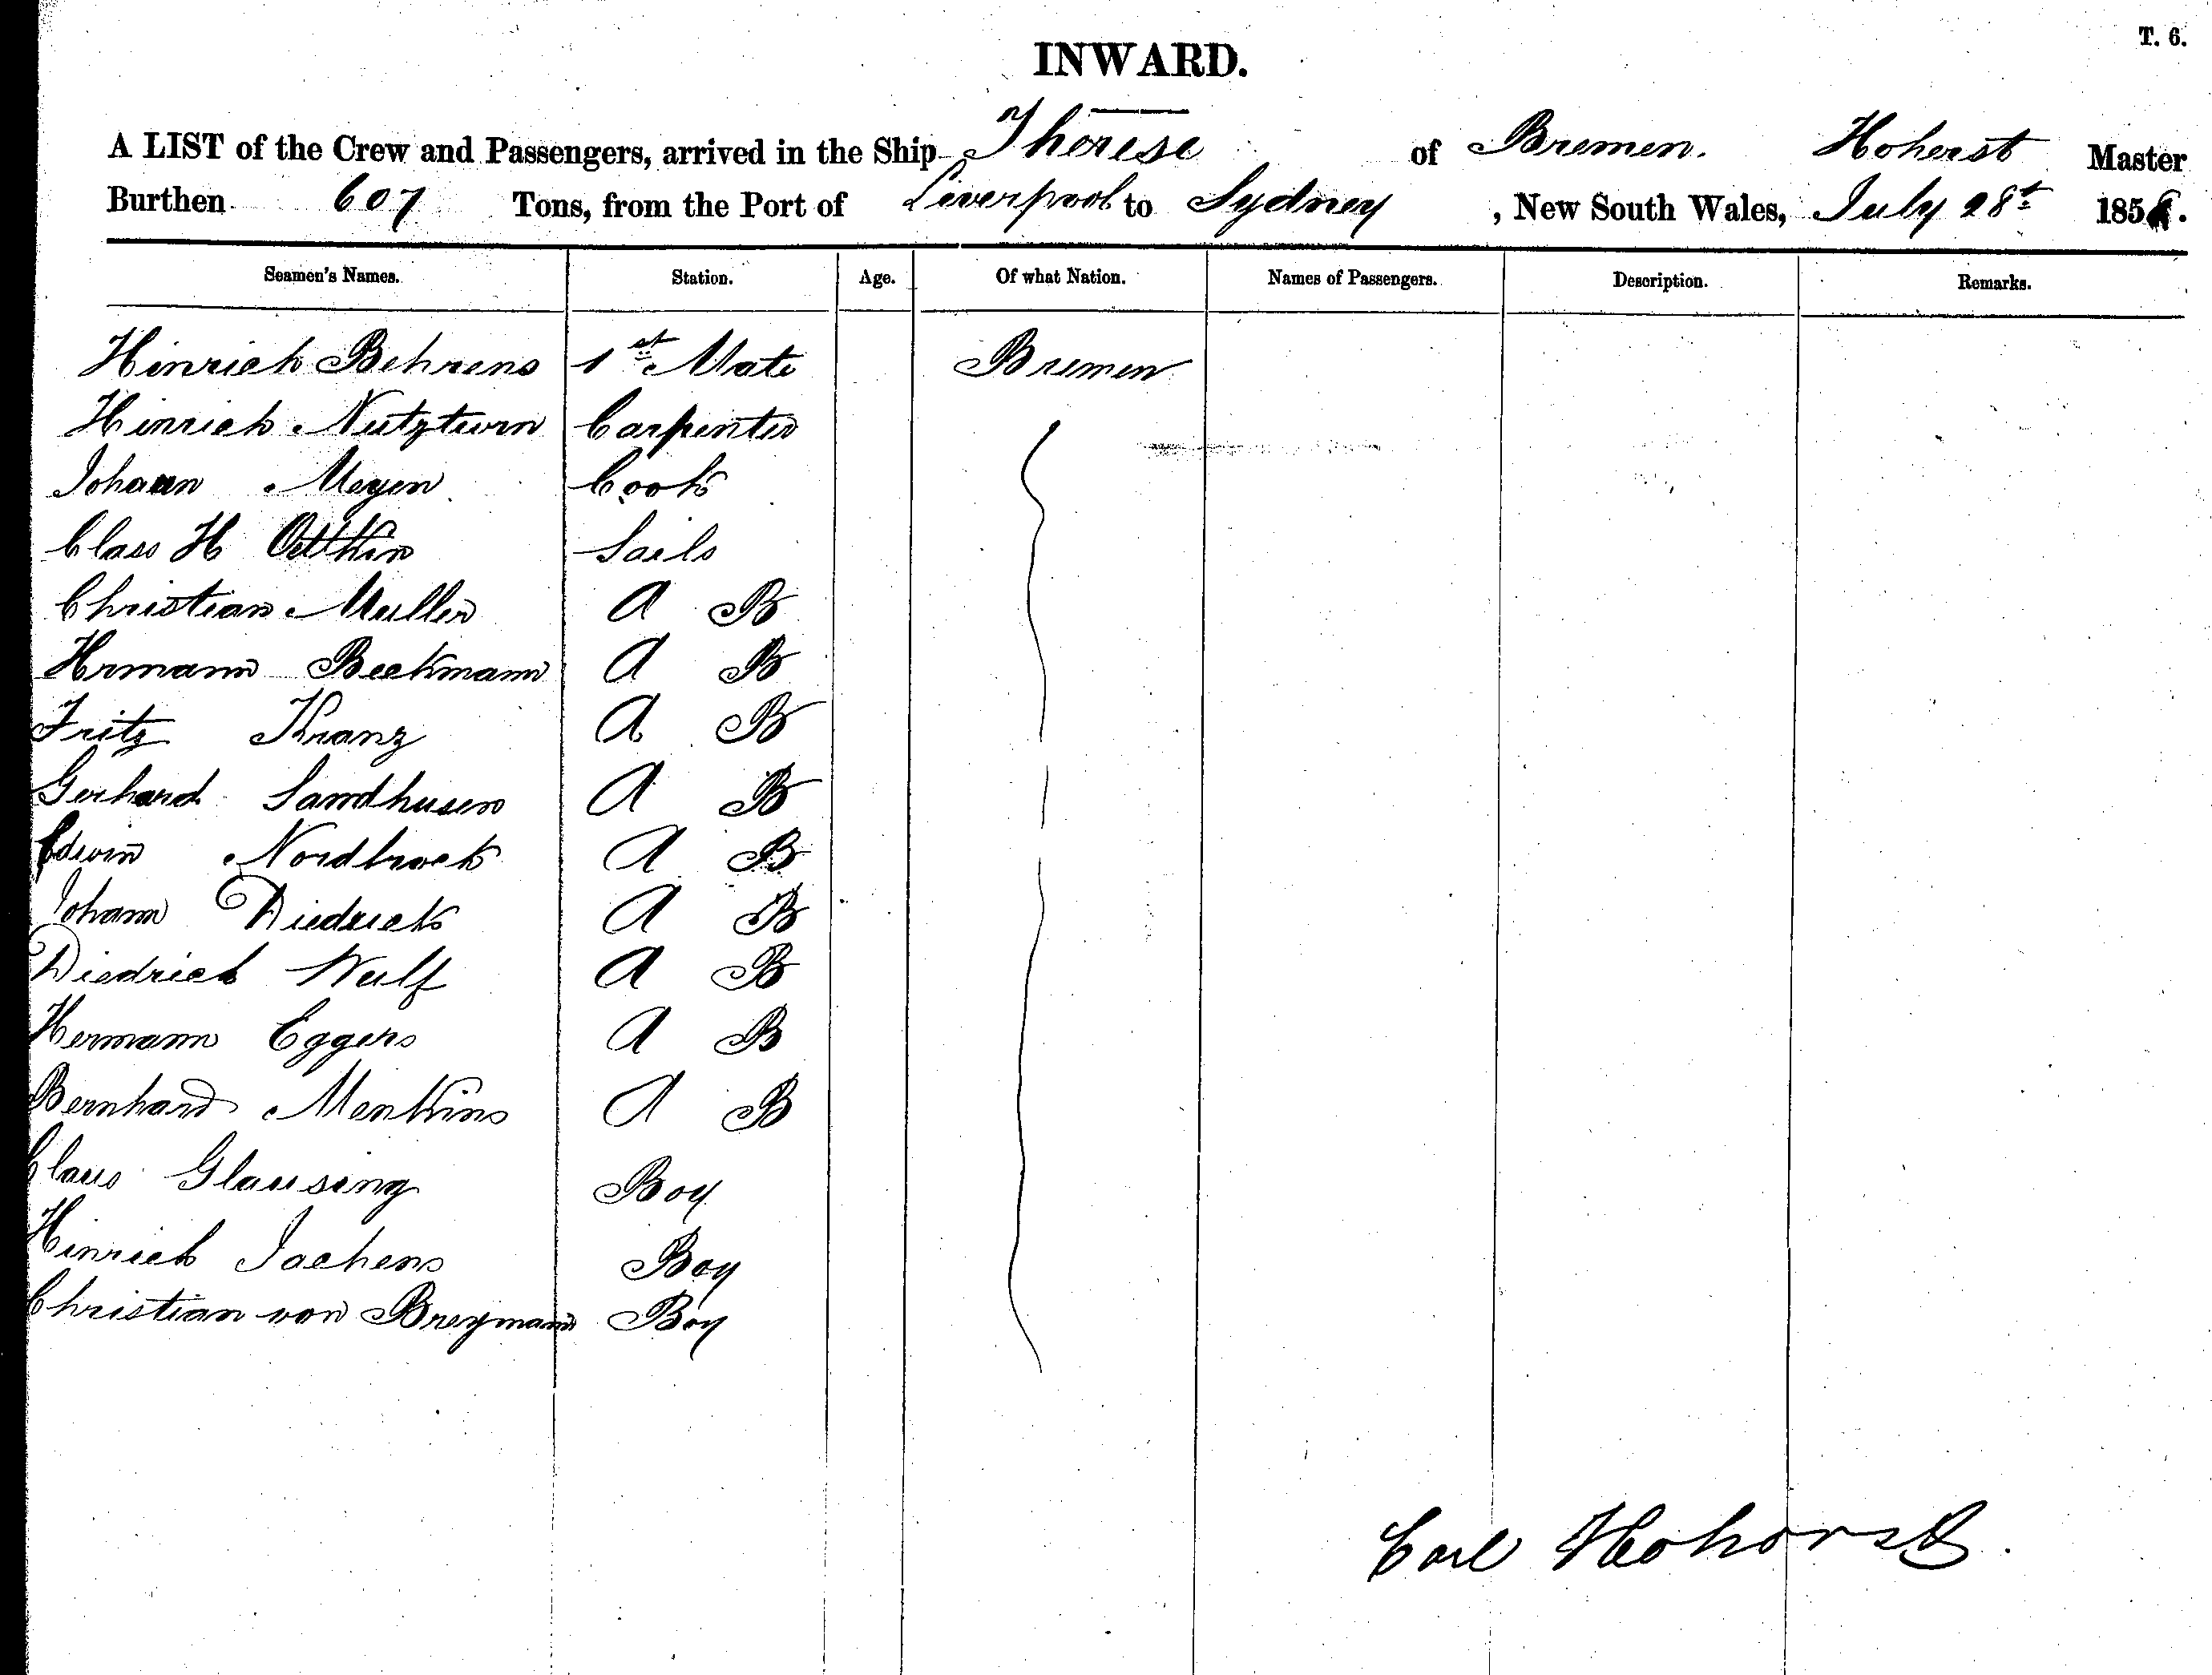 T. 6.
INWARD.
A LIST of the Crew and Passengers, arrived in the Ship Therese of Bremen. Hoherst Master
Burthen 607 Tons, from the Port of Liverpool to Sydney, New South Wales, July 28th 185
Seamen's Names. Station. Age. Of what Nation. Names of Passengers. Description. Remarks.
Hinrich Behrens 1st Mate Bremen
Hinrich Carpenter
Johann Meyen Cook
Class H Sails
Christian Muller A B
Hrmann Beekmann A B
Fritz Kranz A B
Gerhard Sandhusen A B
Edwin Nordbrock A B
Johann Diedrick A B
Diedrich Wulf A B
Hermann Eggers A B
Bernhard Menkins A B
Claus Glausing Boy
Hinrich Jachens Boy
Christian von Breymann Boy
Carl Hohorst.